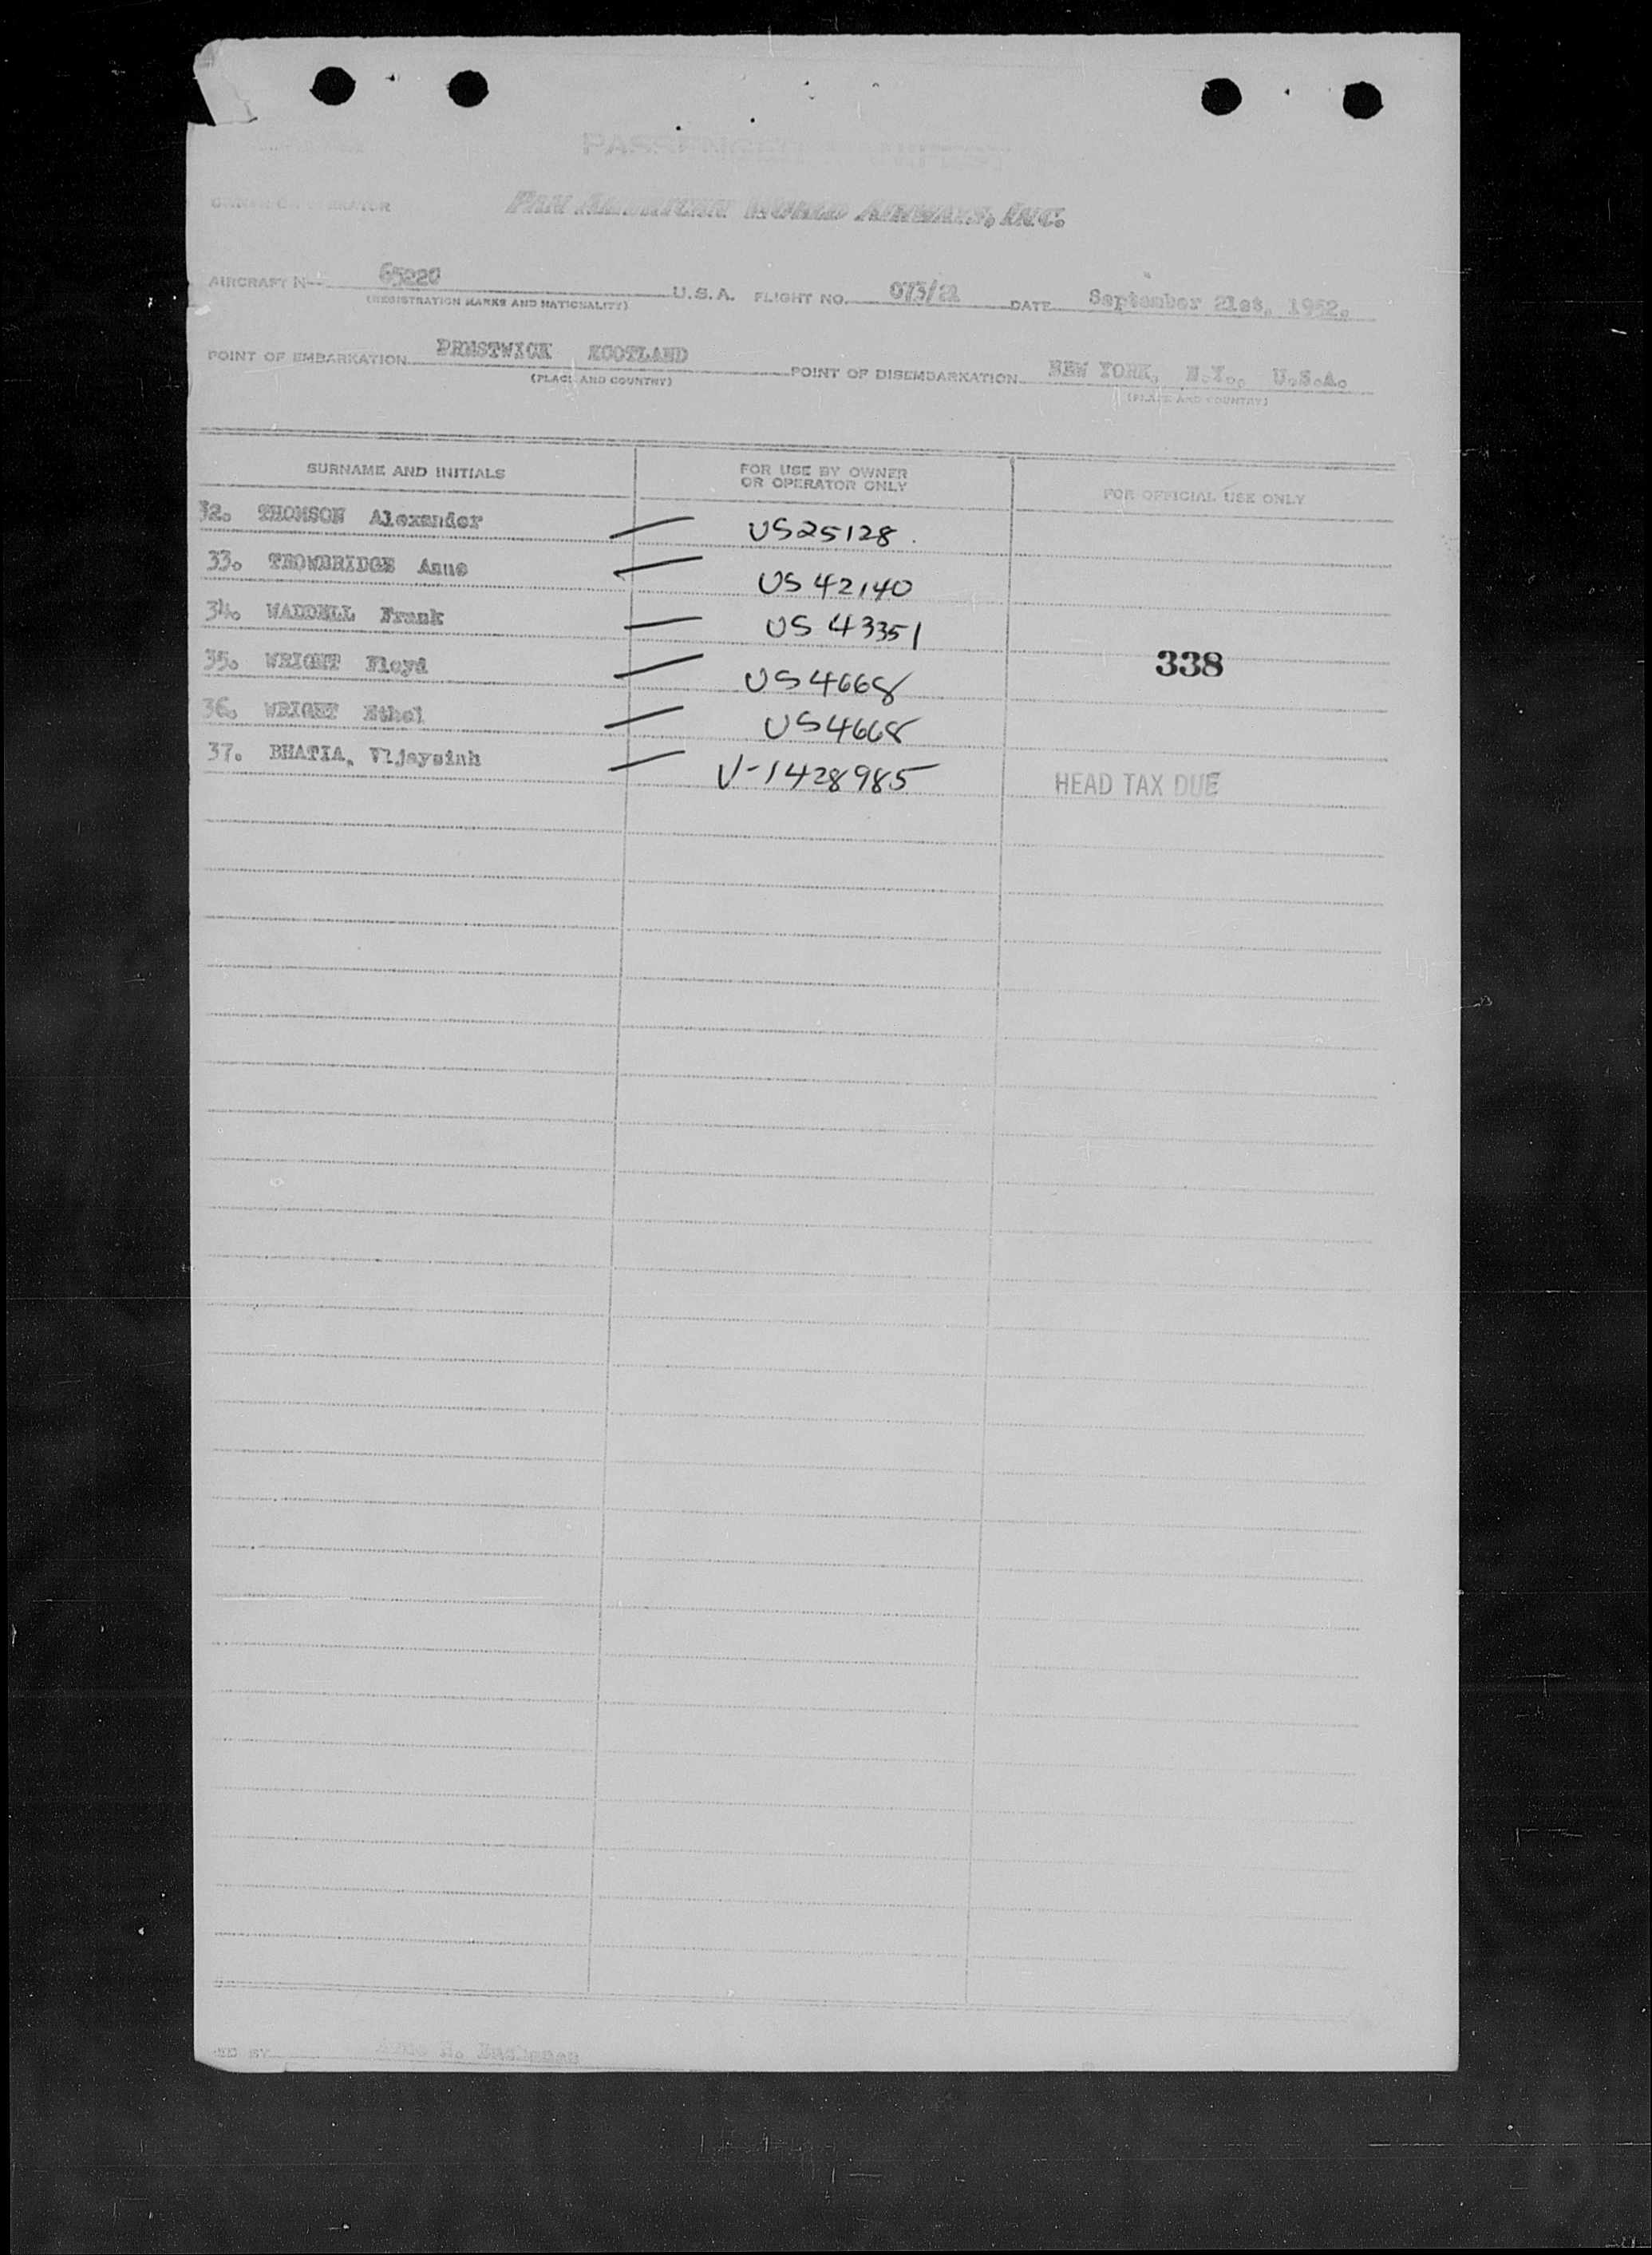 PASSENGER MANIFEST
OWNER OR OPERATOR PAN AMERICAN WORLD AIRWAYS, INC.
AIRCRAFT N-- 65220 U.S.A. FLIGHT NO. 073/21 DATE September 21st, 1952.
(REGISTRATION MARKS AND NATIONALITY)
POINT OF EMBARKATION PRESTWICK SCOTLAND POINT OF DISEMBARKATION NEW YORK, N.Y., U.S.A.
(PLACE AND COUNTRY) (PLACE AND COUNTRY)
SURNAME AND INITIALS FOR USE BY OWNER OR OPERATOR ONLY FOR OFFICIAL USE ONLY
32. THOMSON Alexander US25128
33. TROWBRIDGE Anne US 42140
34. WADDELL Frank US 43351
35. WRIGHT Floyd US4668 338
36. WRIGHT Ethel US4668
37. BHATIA, Vijaysinh V-1428985 HEAD TAX DUE
BY